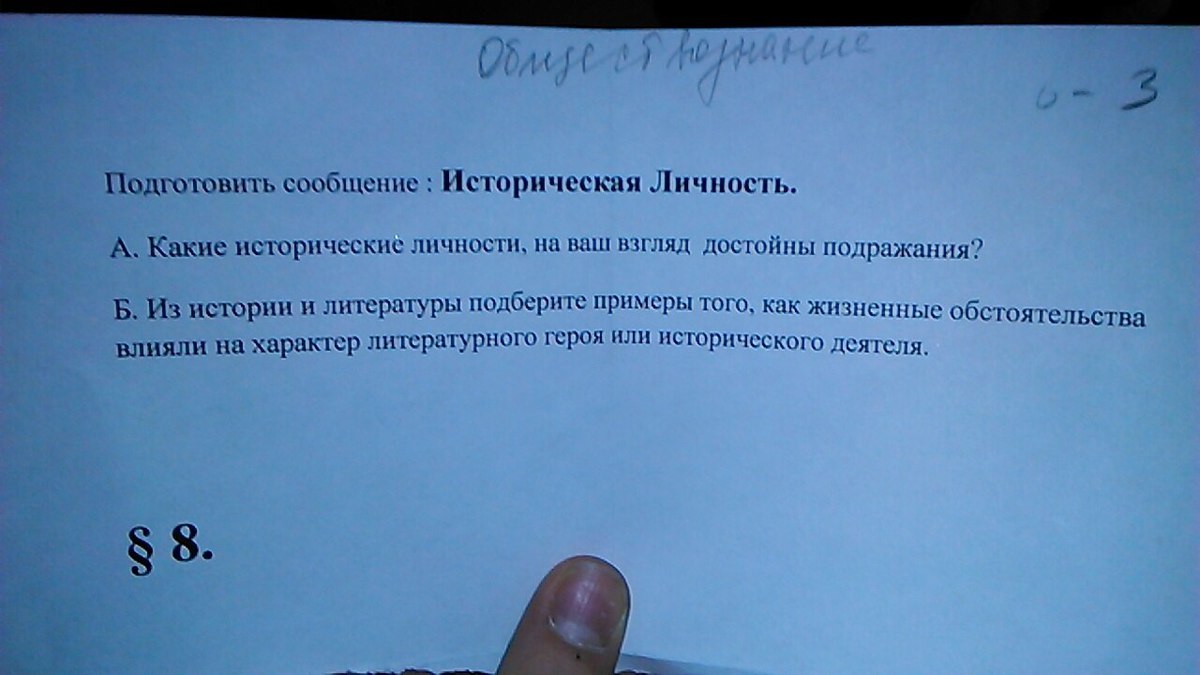 Обществознание
- 3
Подготовить сообщение : Историческая Личность.
А. Какие исторические личности, на ваш взгляд достойны подражания?
Б. Из истории и литературы подберите примеры того, как жизненные обстоятельства
влияли на характер литературного героя или исторического деятеля.
§ 8.